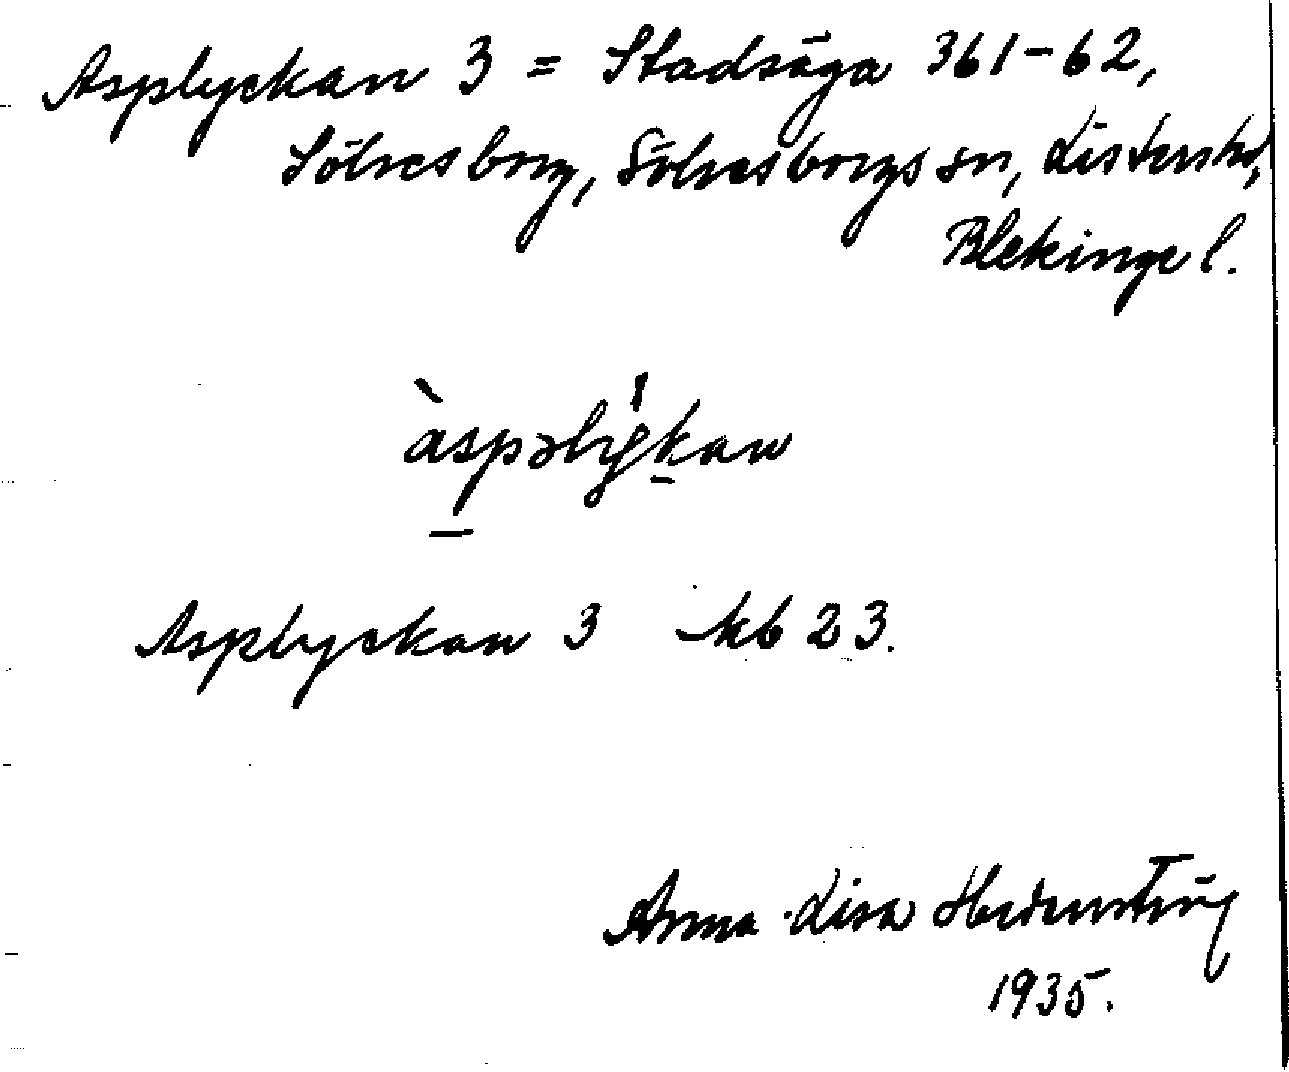 Asplyckan 3 = Stadsäga 361-62,
Sölvesborg, Sölvesborgs sn, Listers hd,
Blekinge l.
àspəlý̱kan
Asplyckan 3 kb 23.
Anna Lisa
1935.